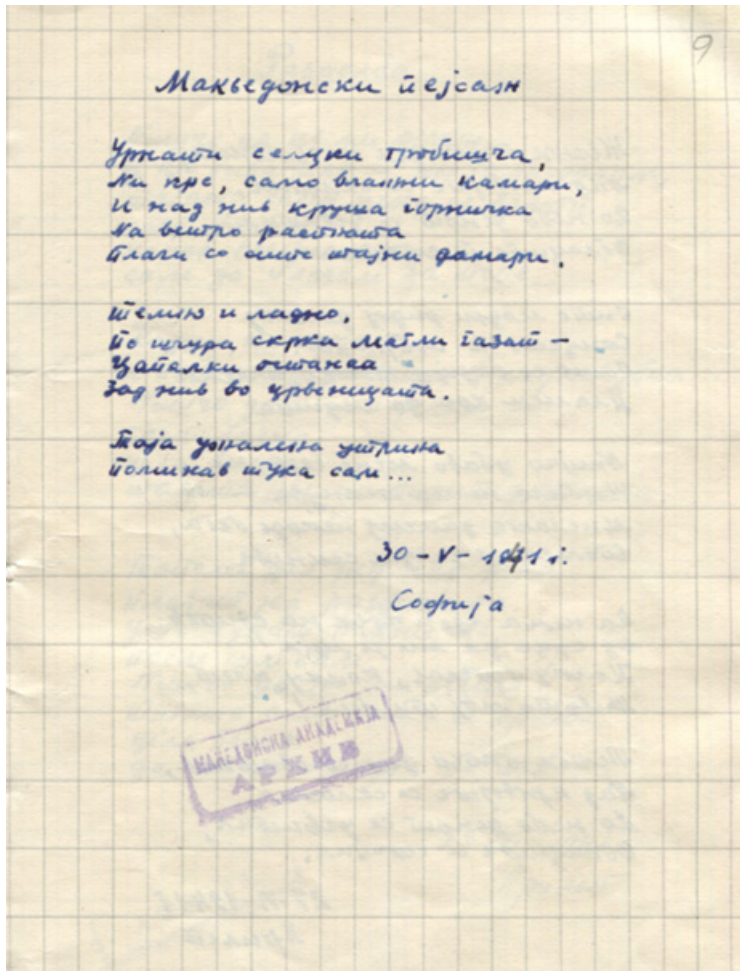 9
Макьедонски пејсаж
Уркати селцки гробишча,
Ни крс, само влажни камари,
И над нив круша горничка
На ветро растната
Плачи со сите тајни дамари.
темно и ладно.
По чкура скрка магли газат –
Цапалки останаа
Зад нив во црвеницата.
Таја ужалена утрина
Поминав тука сам...
30 – V – 1941 г.
Софија
МАКЕДОНСКА АКАДЕМИЈА
АРХИВ